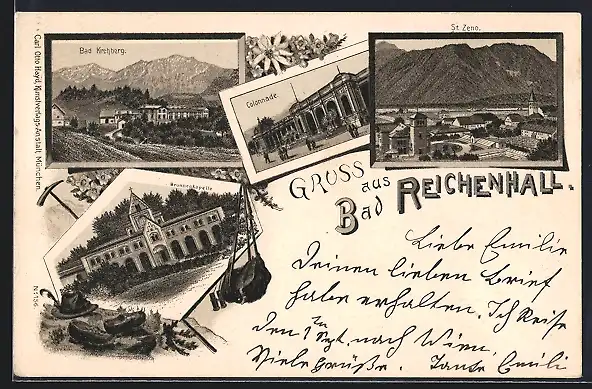 Bad Kirchberg.
Colonnade.
St. Zeno.
Brunnenkapelle
Carl Otto Hayd, Kunstverlags-Anstalt, München.
No 136
GRUSS aus
Bad REICHENHALL.
Liebe Emilie
Deinen lieben Brief
habe erhalten. Ich Reise
den 1ten Sept. nach Wien.
Viele Grüße. Tante Emili